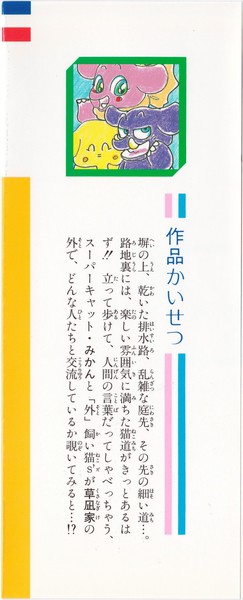 作品かいせつ
塀の上、乾いた排水路、乱雑な庭先、その先の細い道…。
路地裏には、楽しい雰囲気に満ちた猫道がきっとあるは
ず!! 立って歩けて、人間の言葉だってしゃべっちゃう、
スーパーキャット・みかんと「外」飼い猫s'が草凪家の
外で、どんな人たちと交流しているか覗いてみると…!?